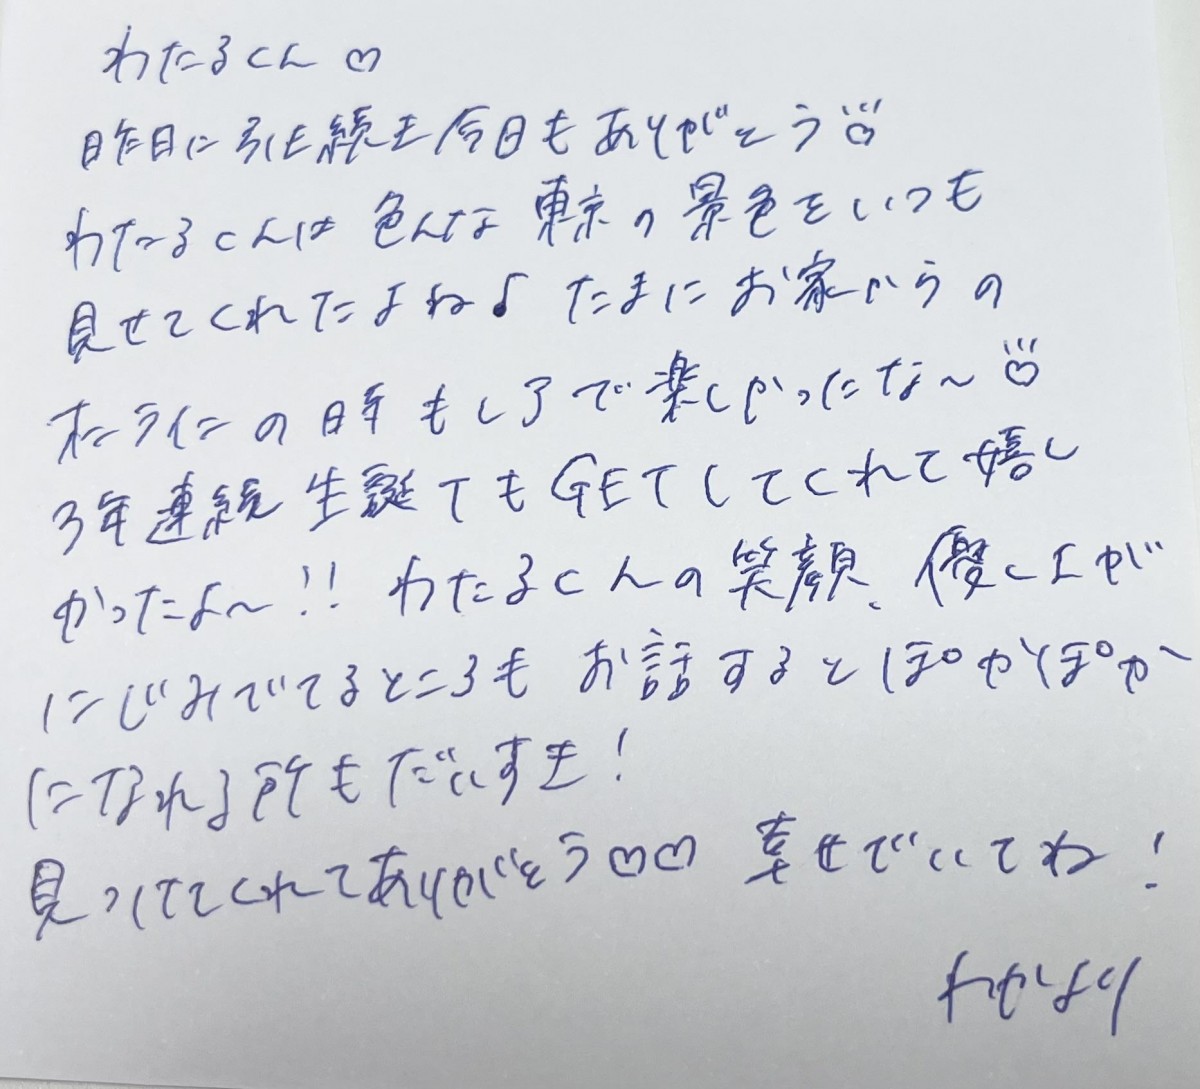 わたるくん♡
昨日に引き続き今日もありがとう♡
わたるくんは色んな東京の景色をいつも
見せてくれたよね♪たまにお家からの
オンラインの時もレアで楽しかったな〜♡
3年連続生誕でもGETしてくれて嬉し
かったよ〜!!わたるくんの笑顔、優しさが
にじみでてるところもお話するとぽかぽか
になれる所もだいすき!
見つけてくれてありがとう♡♡ 幸せでいてね!
わかより